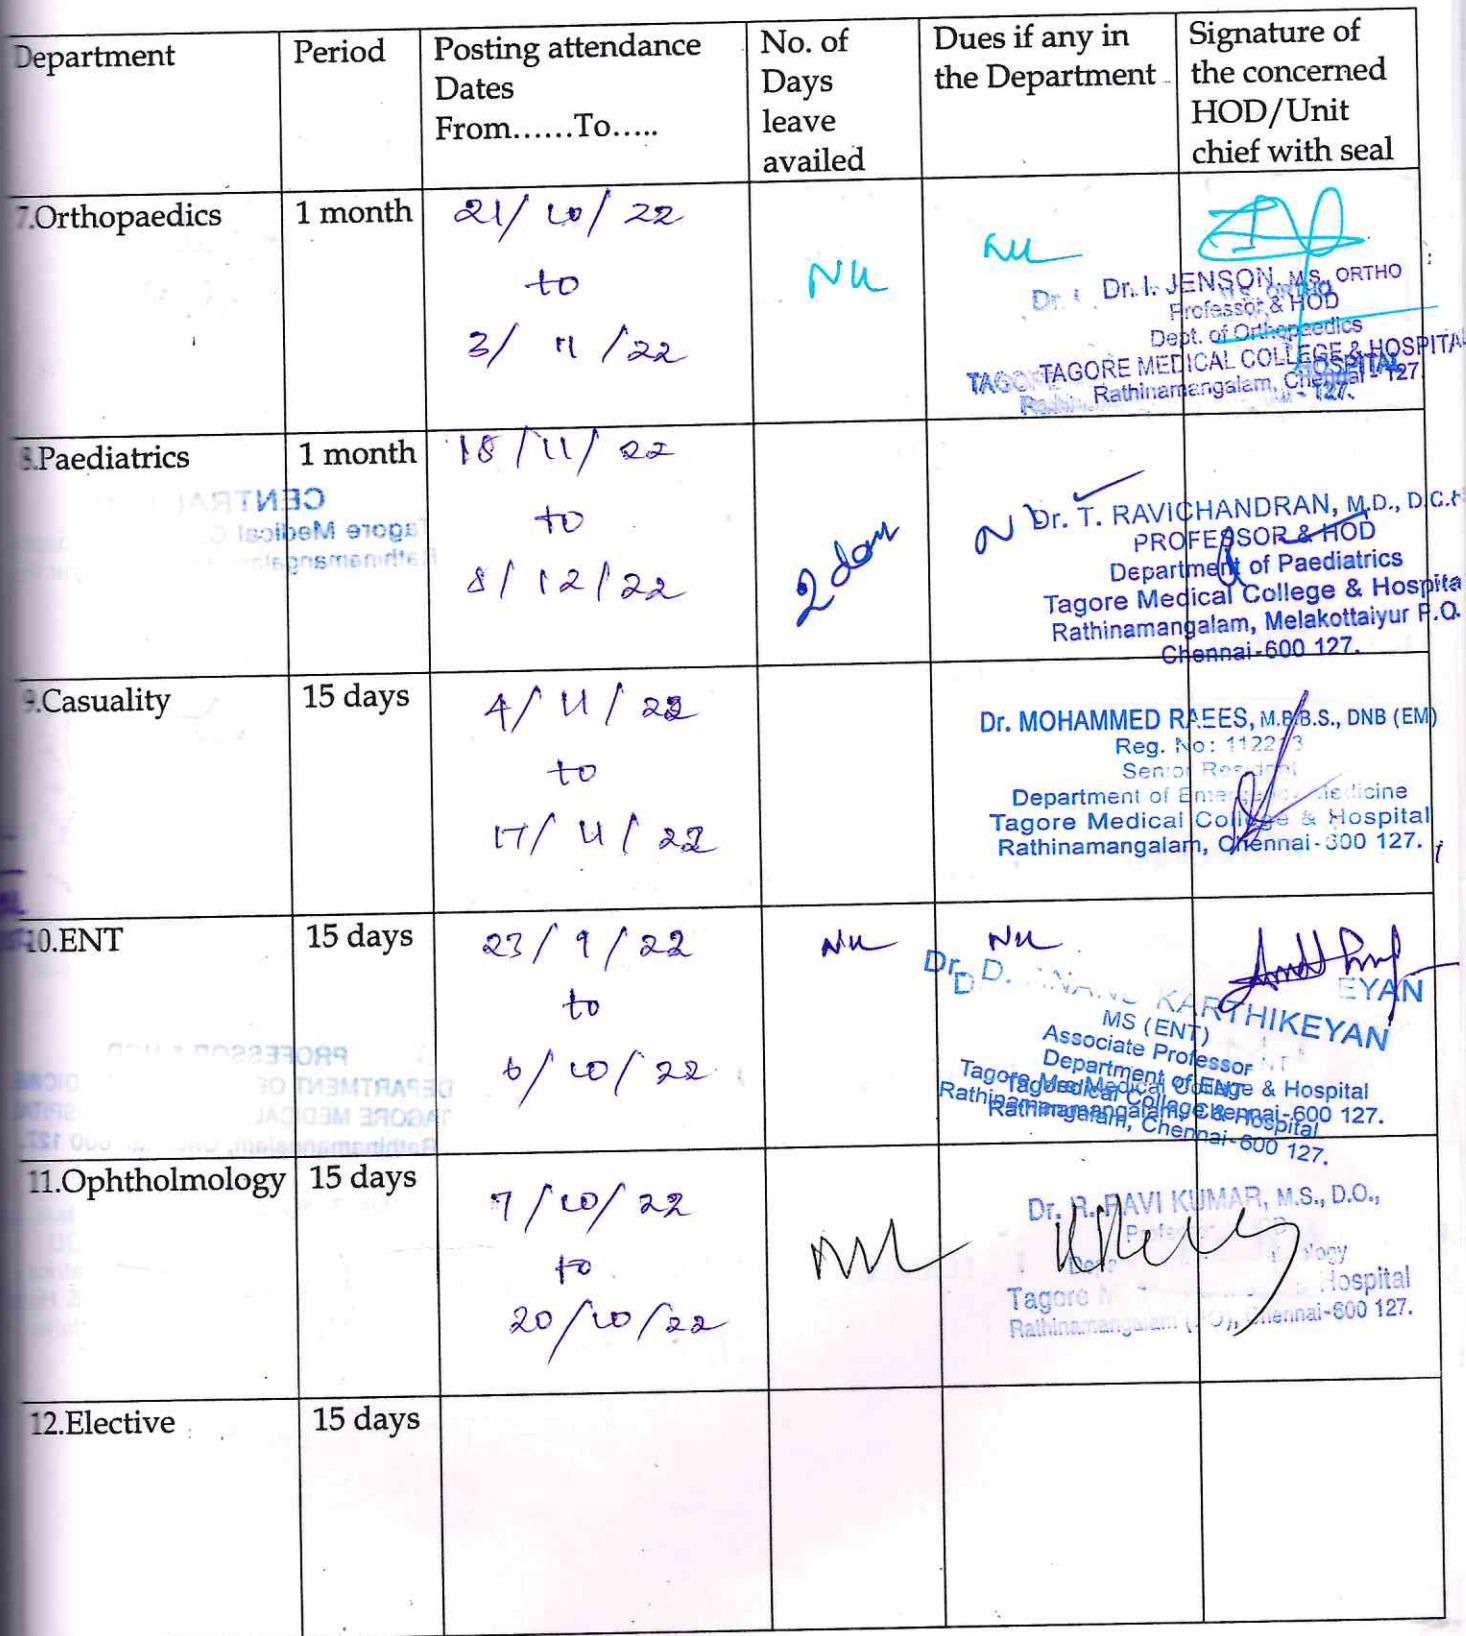 Department
Period
Posting attendance
Dates
From......To.....
No. of
Days
leave
availed
Dues if any in
the Department
Signature of
the concerned
HOD/Unit
chief with seal
7.Orthopaedics
1 month
21/10/22
to
3/11/22
Nil
Nil
Dr. I. JENSON, M.S., ORTHO
Professor & HOD
Dept. of Orthopaedics
TAGORE MEDICAL COLLEGE & HOSPITAL
Rathinamangalam, Chennai - 127.
8.Paediatrics
1 month
18/11/22
to
8/12/22
2 days
Dr. T. RAVICHANDRAN, M.D., D.C.H
PROFESSOR & HOD
Department of Paediatrics
Tagore Medical College & Hospita
Rathinamangalam, Melakottaiyur P.O.
Chennai-600 127.
9.Casuality
15 days
4/11/22
to
17/11/22
Dr. MOHAMMED RAEES, M.B.B.S., DNB (EM)
Reg. No: 112213
Senior Resident
Department of Emergency Medicine
Tagore Medical College & Hospital
Rathinamangalam, Chennai-600 127.
10.ENT
15 days
23/9/22
to
6/10/22
Nil
Nil
Dr. D. ANAND KARTHIKEYAN
MS (ENT)
Associate Professor
Department of ENT
Tagore Medical College & Hospital
Rathinamangalam, Chennai-600 127.
11.Ophtholmology
15 days
7/10/22
to
20/10/22
Nil
Dr. R. RAVI KUMAR, M.S., D.O.,
Tagore Hospital
Rathinamangalam Chennai-600 127.
12.Elective
15 days